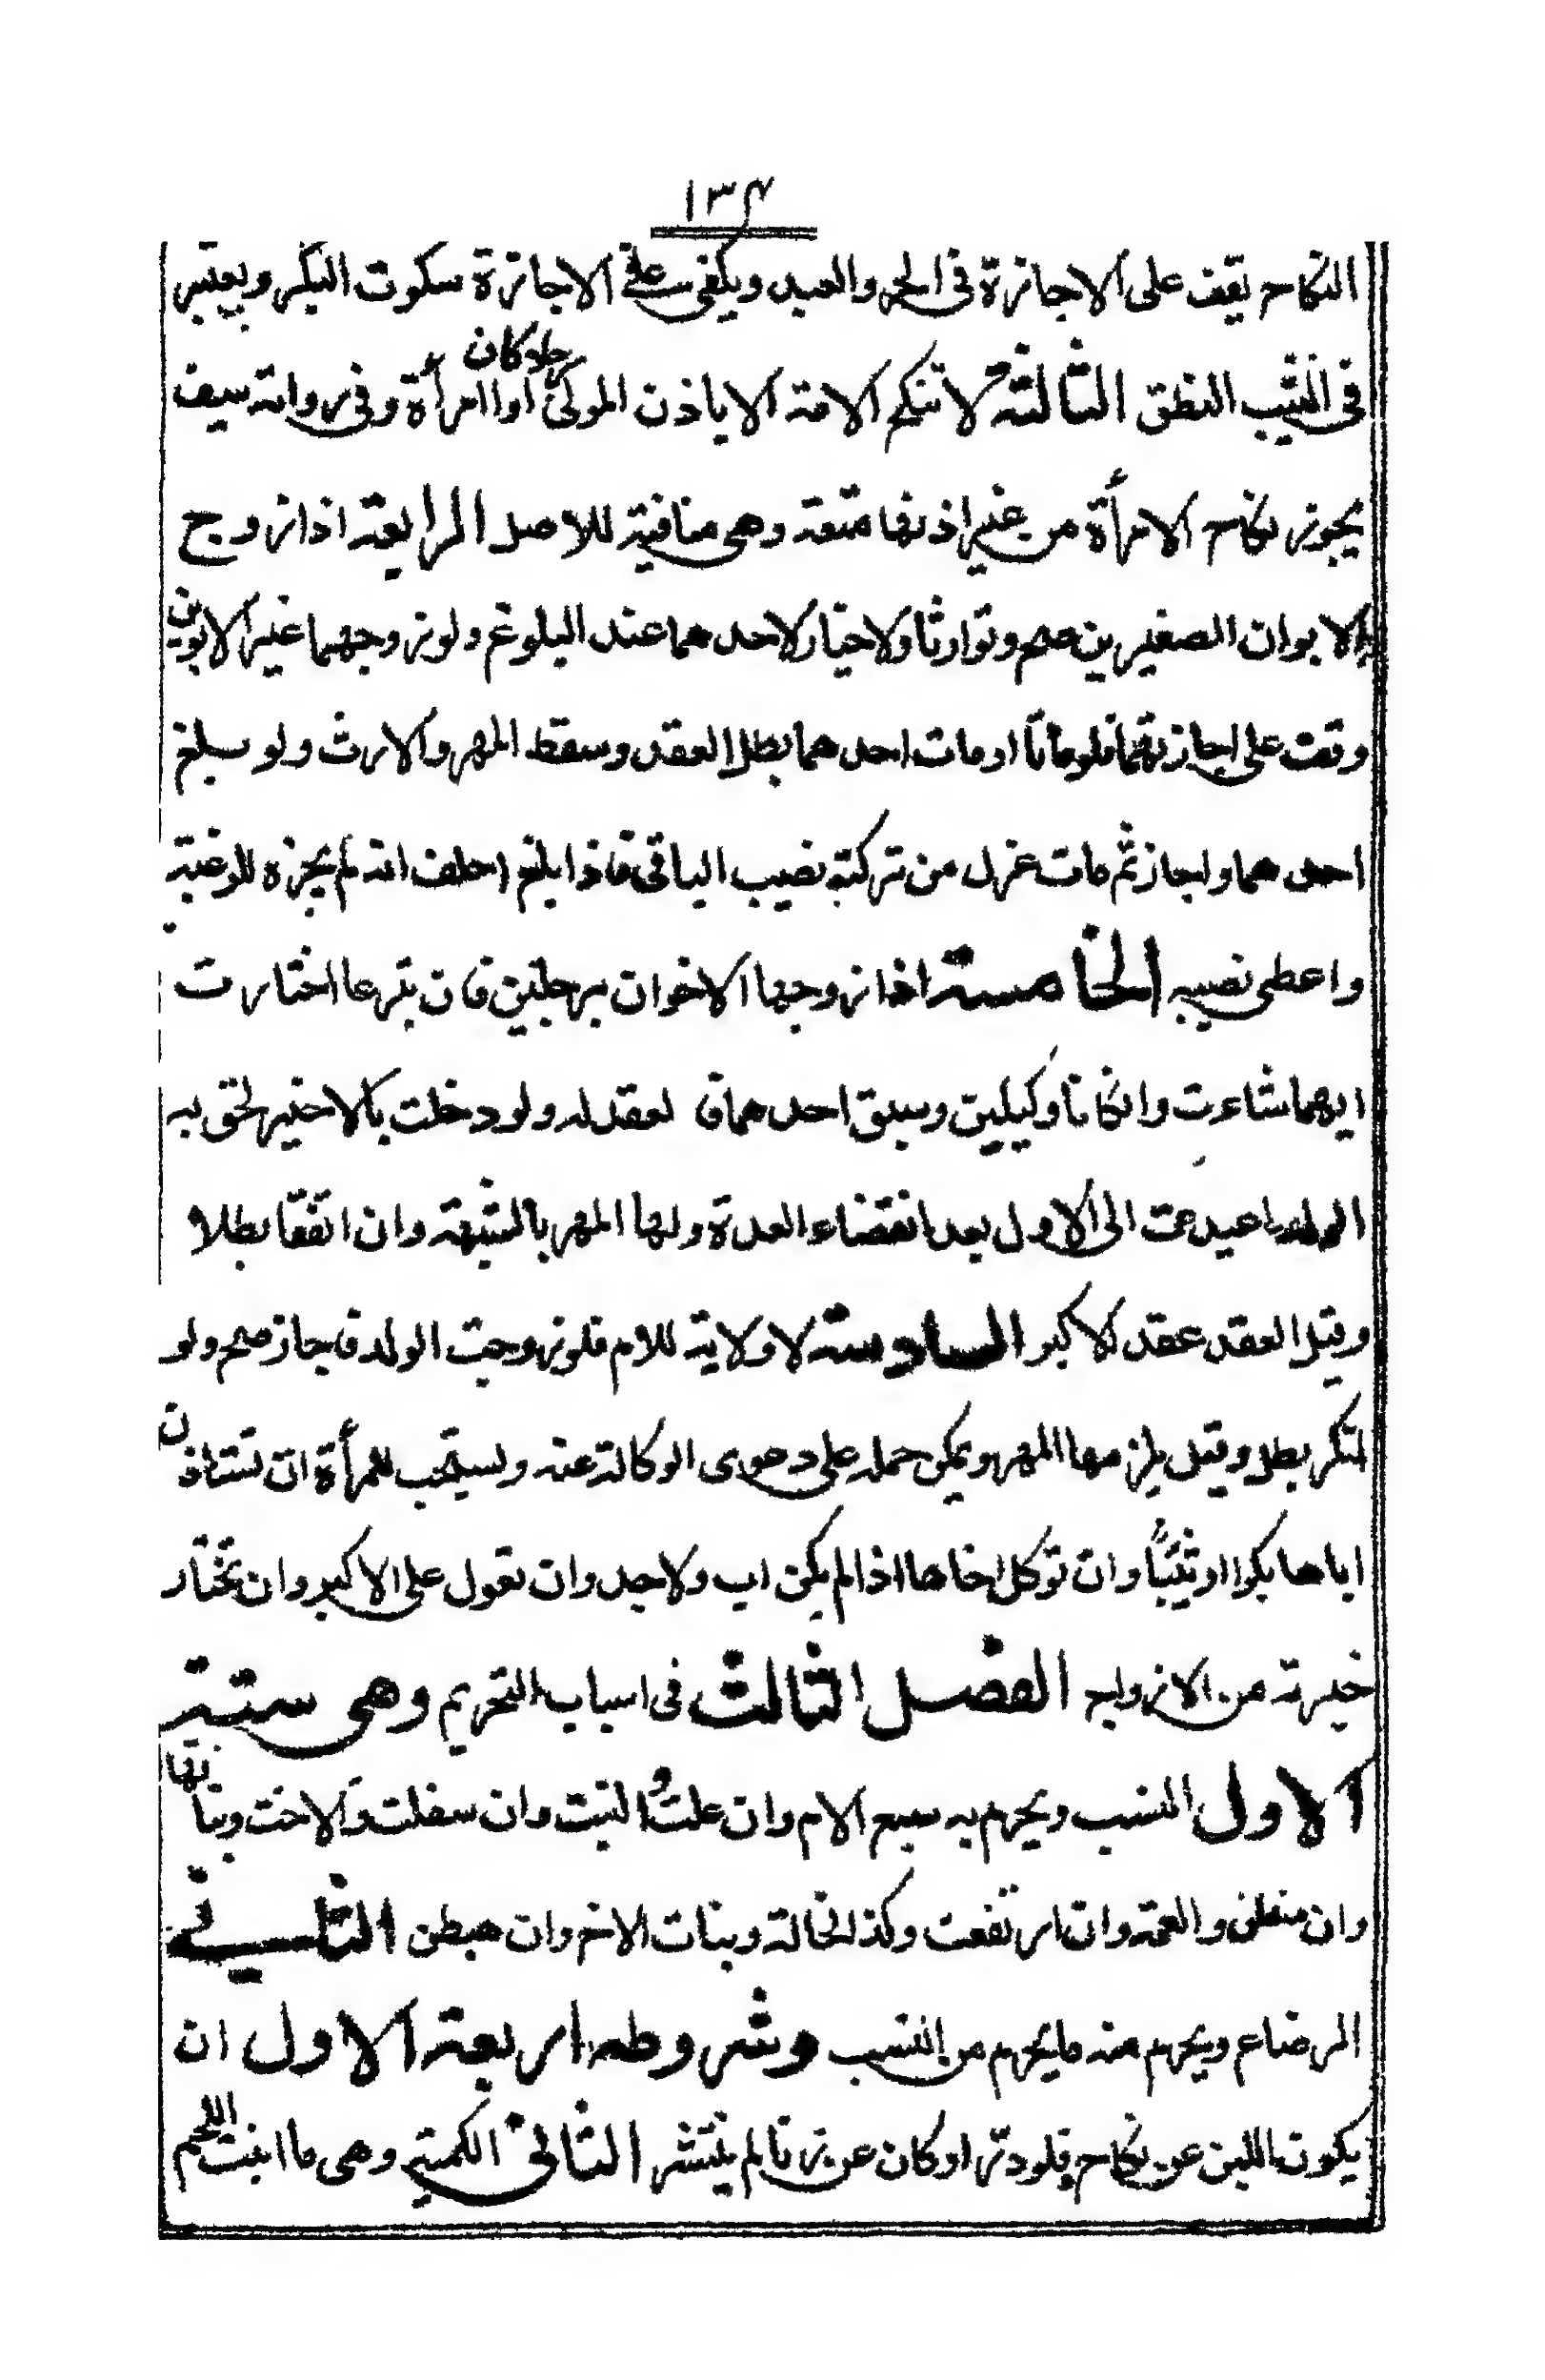 ١٣٤
النكاح يقف على الاجازة فى الحر والعبد ويكفى على الاجازة سكوت البكر ويعتبر
فى الثيب النطق الثالثة لا تنكح الامة الا باذن المولى رجلا كان او امرأة وفى رواية سيف
يجوز نكاح الامرأة من غير اذنها متعة وهى منافية للاصل الرابعة اذا زوج
الابوان الصغيرين صح وتوارثا ولا خيار لاحدهما عند البلوغ ولو زوجهما غير الابوين
وقف على اجازتهما فلو ماتا او مات احدهما بطل العقد وسقط المهر والارث ولو بلغ
احدهما واجاز ثم مات عزل من تركته نصيب الباقى فاذا بلغ احلف انه لم يجزه للرغبة
واعطى نصيبه الخامسة اذا زوجها الاخوان برجلين فان تبرعا اختارت
ايهما شاءت وان كانا وكيلين وسبق احدهما فالعقد له ولو دخلت بالاخير لحق به
الولد واعيدت الى الاول بعد انقضاء العدة ولها المهر بالشبهة وان اتفقا بطلا
وقيل العقد عقد الاكبر السادسة لا ولاية للام فلو زوجت الولد فاجاز صح ولو
انكر بطل وقيل يلزمها المهر ويمكن حمله على دعوى الوكالة عنه ويستحب للمرأة ان تستاذن
اباها بكرا او ثيبا وان توكل اخاها اذا لم يكن اب ولا جد وان تعول على الاكبر وان تختار
خيرته من الازواج الفصل الثالث فى اسباب التحريم وهى ستة
الاول النسب ويحرم به سبع الام وان علت والبنت وان سفلت والاخت وبناتها
وان سفلن والعمة وان ارتفعت وكذا الخالة وبنات الاخ وان هبطن الثانى
الرضاع ويحرم منه ما يحرم من النسب وشروطه اربعة الاول ان
يكون اللبن عن نكاح فلو در او كان عن زنا لم ينتشر الثانى الكمية وهى ما انبت اللحم